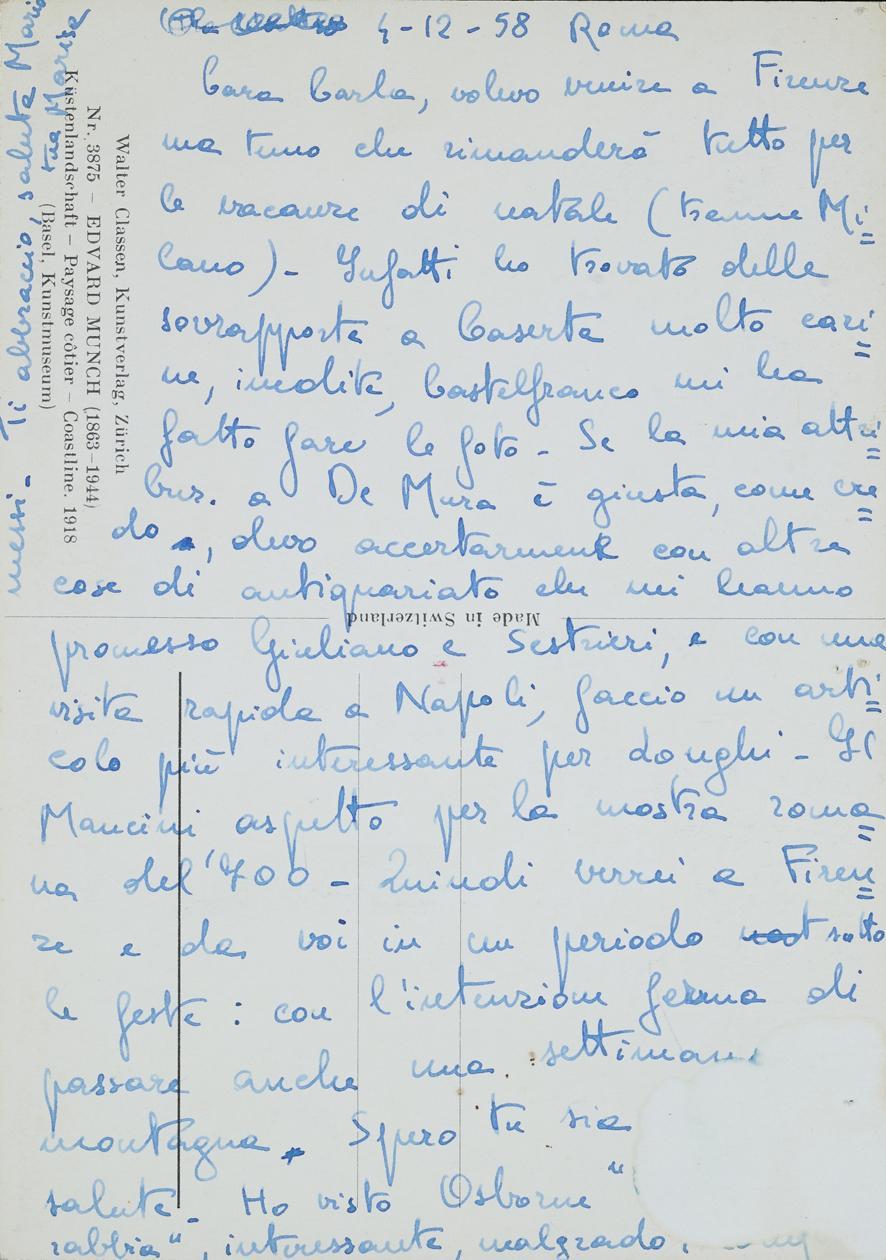 4-12-58 Roma
Cara Carla, volevo venire a Firenze
ma temo che rimanderò tutto per
le vacanze di natale (tranne Mi=
lano)- Infatti ho trovato delle
sovrapporte a Caserta molto cari=
ne, inedite, Castelfranco mi ha
fatto fare le foto- Se la mia attri=
buz. a De Mura è giusta, come cre=
do, devo accertarmene con altre
cose di antiquariato che mi hanno
promesso Giuliano e Sestrieri, e con una
visita rapida a Napoli, faccio un arti=
colo più interessante per Longhi- Il
Mancini aspetto per la mostra roma=
na del '700- Quindi verrei a Firen=
ze e da voi in un periodo sotto
le feste: con l'intenzione ferma di
passare anche una
montagna. Spero tu sia
salute- Ho visto Osborne "
rabbia", interessante, malgrado
messi- Ti abbraccio, saluta Mario
tua Marisa
Walter Classen, Kunstverlag, Zürich
Nr. 3875 – EDVARD MUNCH (1863–1944)
Küstenlandschaft – Paysage côtier – Coastline. 1918
(Basel, Kunstmuseum)
Made in Switzerland